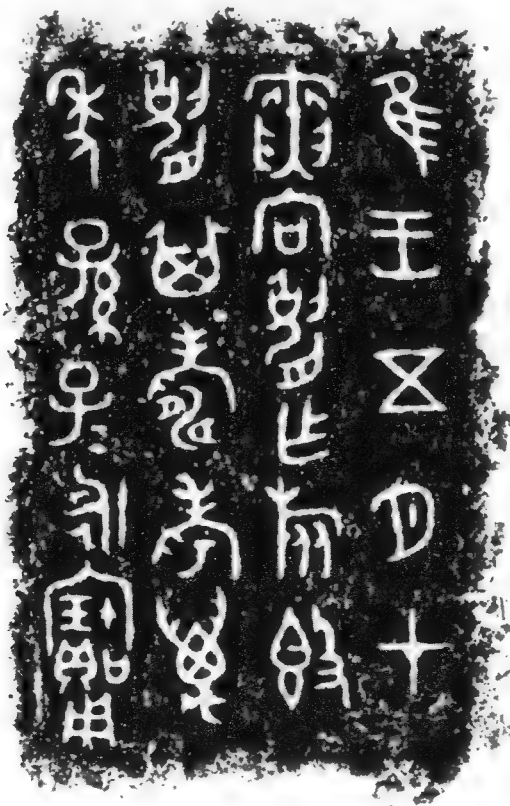 隹王五月甲
寅向乍旅𣪘
其壽考萬
年孫子＝永寶用